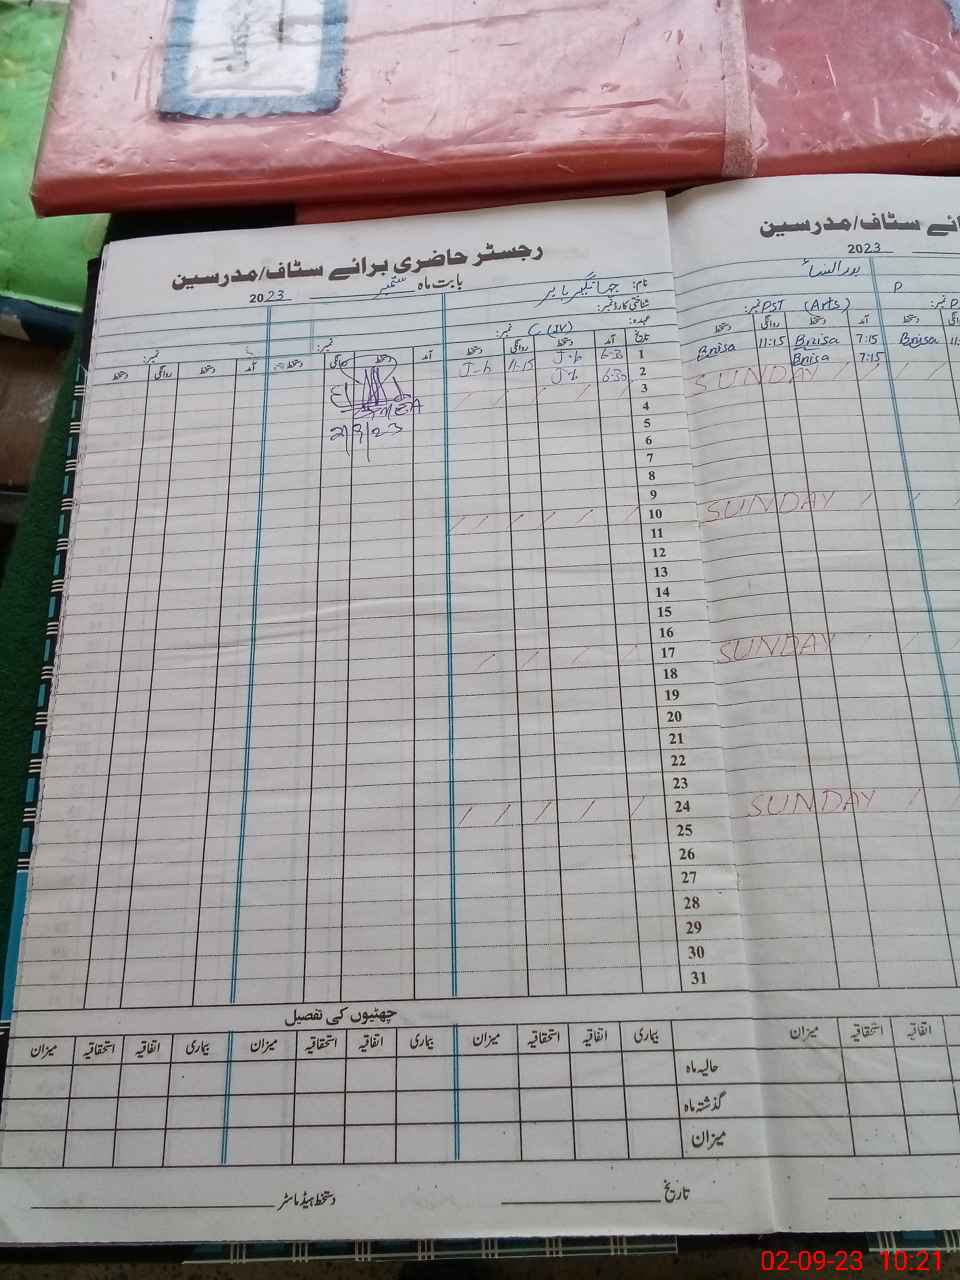 رجسٹر حاضری برائے سٹاف/مدرسین
بابت ماہ ستمبر 2023
نام:
شناختی کارڈ نمبر:
عہدہ: C (IV) نمبر:
تاریخ آمد دستخط روانگی دستخط آمد دستخط روانگی دستخط آمد دستخط روانگی دستخط
1 6:30 J-b 11:15 J-b
2 6:30
EMEA
2/9/23
3
4
5
6
7
8
9
10
11
12
13
14
15
16
17
18
19
20
21
22
23
24
25
26
27
28
29
30
31
چھٹیوں کی تفصیل
بیماری اتفاقیہ استحقاقیہ میزان بیماری اتفاقیہ استحقاقیہ میزان بیماری اتفاقیہ استحقاقیہ میزان
حالیہ ماہ
گذشتہ ماہ
میزان
تاریخ دستخط ہیڈ ماسٹر
ائے سٹاف/مدرسین
2023
PST (Arts) نمبر:
آمد دستخط روانگی دستخط
7:15 Bnisa 11:15 Bnisa
7:15 Bnisa
SUNDAY
SUNDAY
SUNDAY
SUNDAY
اتفاقیہ استحقاقیہ میزان
02-09-23 10:21